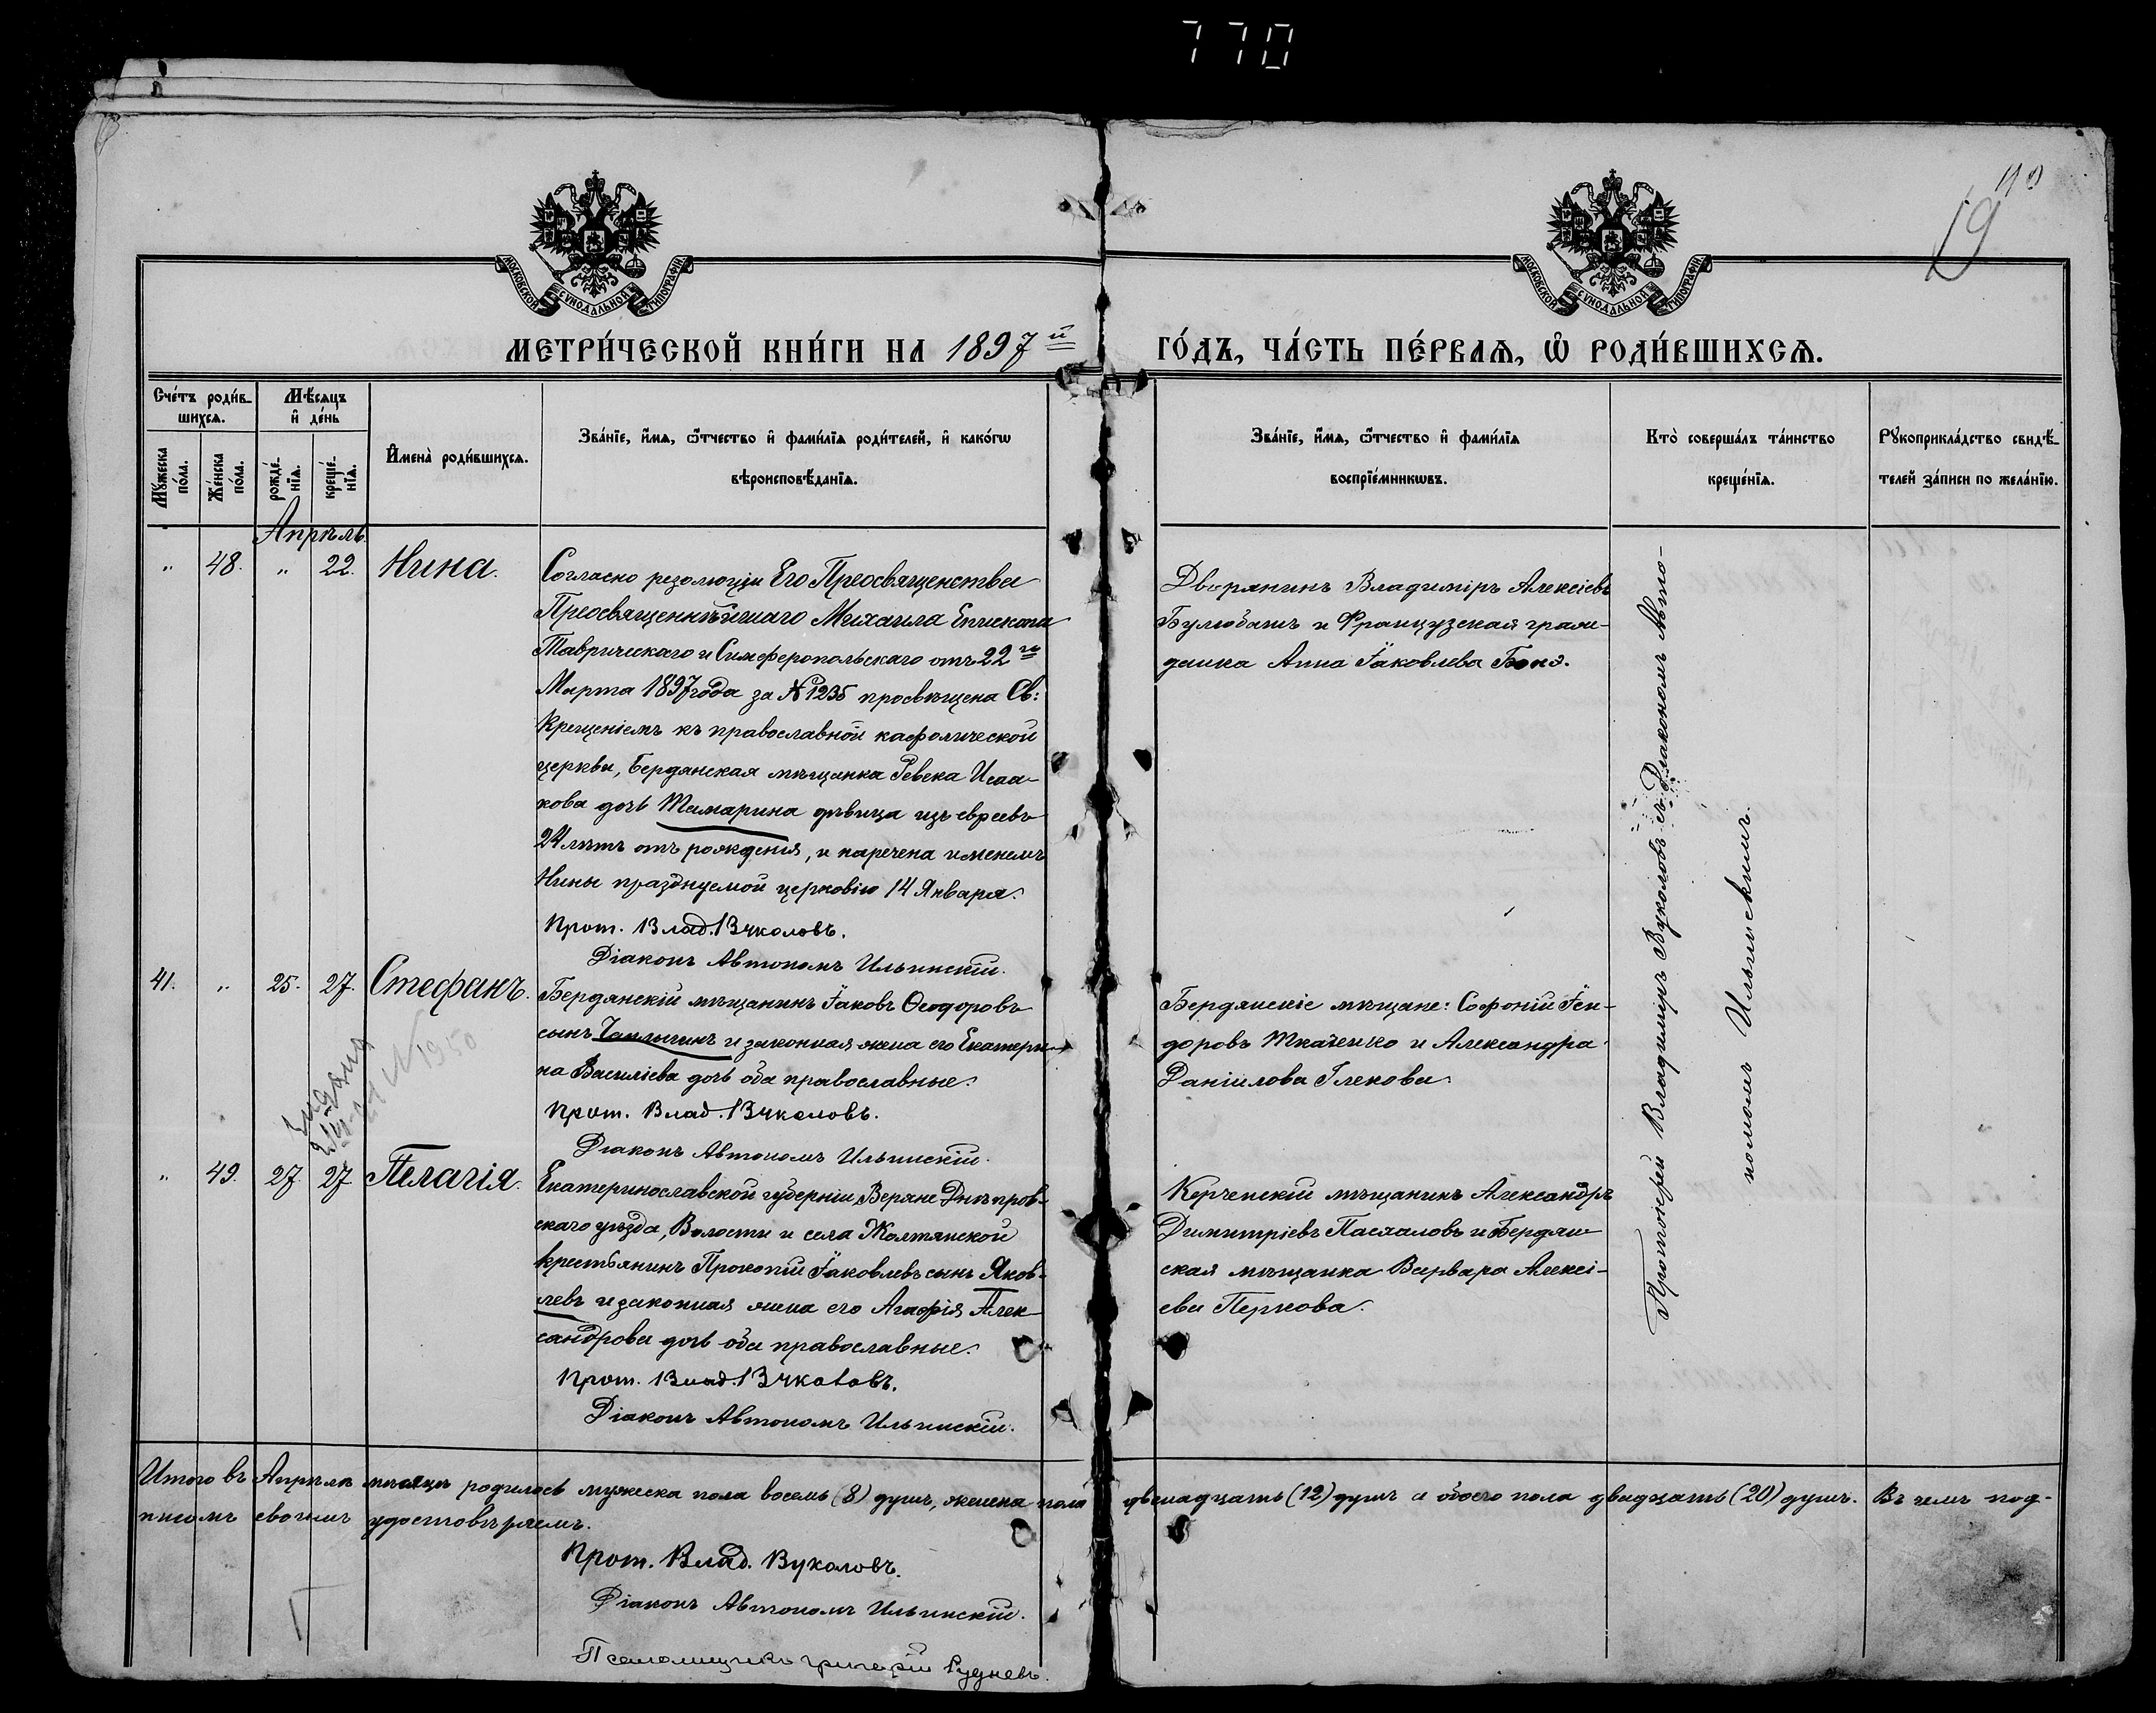 770
19
МОСКОВСКОЙ СѴНОДАЛЬНОЙ ТИПОГРАФІИ
МОСКОВСКОЙ СѴНОДАЛЬНОЙ ТИПОГРАФІИ
МЕТРИ́ЧЕСКОЙ КНИ́ГИ НА 1897й
ГО́ДЪ, ЧА́СТЬ ПЕ́РВАѦ, Ѡ҆ РОДИ́ВШИХСѦ.
Сче́тъ роди́в-
шихсѧ.
Мѣ́сѧцъ
и҆ де́нь
Мꙋ́жеска
по́ла.
Же́нска
по́ла.
рожде́-
нїѧ.
креще́-
нїѧ.
И҆мена̀ роди́вшихсѧ.
Зва́нїе, и҆́мѧ, ѻ҆́тчество и҆ фами́лїѧ роди́телей, и҆ како́гѡ
вѣроисповѣ́данїѧ.
Зва́нїе, и҆́мѧ, ѻ҆́тчество и҆ фами́лїѧ
воспрїе́мникѡвъ.
Кто̀ соверша́лъ та́инство
креще́нїѧ.
Рꙋкоприкла́дство свидѣ́-
телей за́писи по жела́нїю.
Апрѣль.
" 48. " 22. Нина.
Согласно резолюціи Его Преосвященства
Преосвященнѣйшаго Михаила Епископа
Таврическаго и Симферопольскаго отъ 22го
Марта 1897 года за № 1235 просвѣщена Св:
Крещеніемъ къ православной кафолической
церкви, Бердянская мѣщанка Ревека Исаа-
кова дочь Тамарина дѣвица изъ евреевъ
24 лѣтъ отъ рожденія, и наречена именемъ
Нины празднуемой церковію 14 Января.
Прот. Влад. Вуколовъ.
Діаконъ Автономъ Ильинскій.
Дворянинъ Владиміръ Алексіевъ
Булюбашъ и Французская граж-
данка Анна Іаковлева Бокэ.
41. " 25. 27. Стефанъ.
Бердянскій мѣщанинъ Іаковъ Ѳеодоровъ
сынъ Чаплыгинъ и законная жена его Екатери-
на Василіева дочь оба православные.
Прот. Влад. Вуколовъ.
Діаконъ Автономъ Ильинскій.
Бердянскіе мѣщане: Софоній
доровъ Ткаченко и Александра
Даніилова Глекова.
1950
" 49. 27. 27 Пелагія.
Екатеринославской губерніи, Верхне Днѣпров-
скаго уѣзда, Волости и села Жолтянской
крестьянинъ Прокопій Іаковлевъ сынъ Яков-
левъ и законная жена его Агафія Алек-
сандрова дочь оба православные.
Прот. Влад. Вуколовъ.
Діаконъ Автономъ Ильинскій.
Керченскій мѣщанинъ Александръ
Димитріевъ Пасхаловъ и Бердян
ская мѣщанка Варвара Алексі-
ева Перкова.
Протоіерей Владиміръ Вуколовъ съ Діакономъ Авто-
номомъ Ильинскимъ.
Итого въ Апрѣлѣ мѣсяцѣ родилось мужеска пола восемь (8) душъ, женска пола двенадцать (12) душъ а обоего пола двадцать (20) душъ. Въ чемъ под-
писомъ своимъ удостовѣряемъ.
Прот. Влад. Вуколовъ.
Діаконъ Автономъ Ильинскій.
Псаломщикъ Григорій Рудневъ.